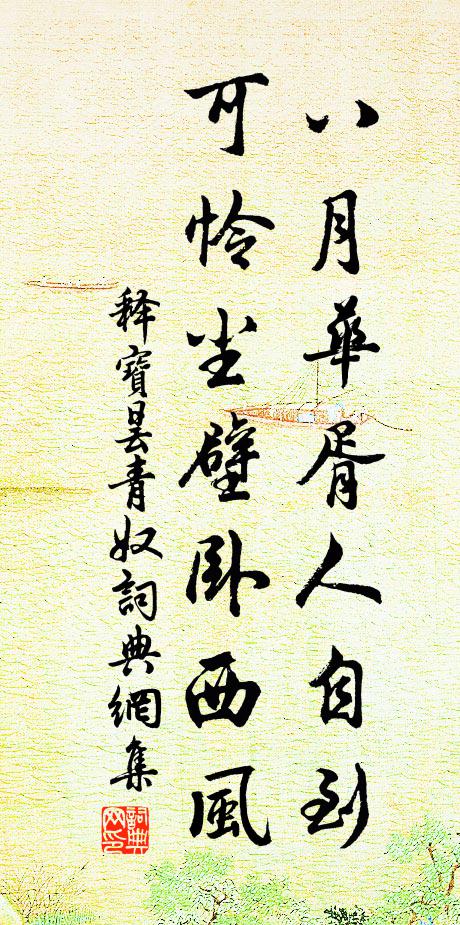 八月華胥人自到
可怜尘壁卧西風
释寶昙青奴詞典網集
詞典网印